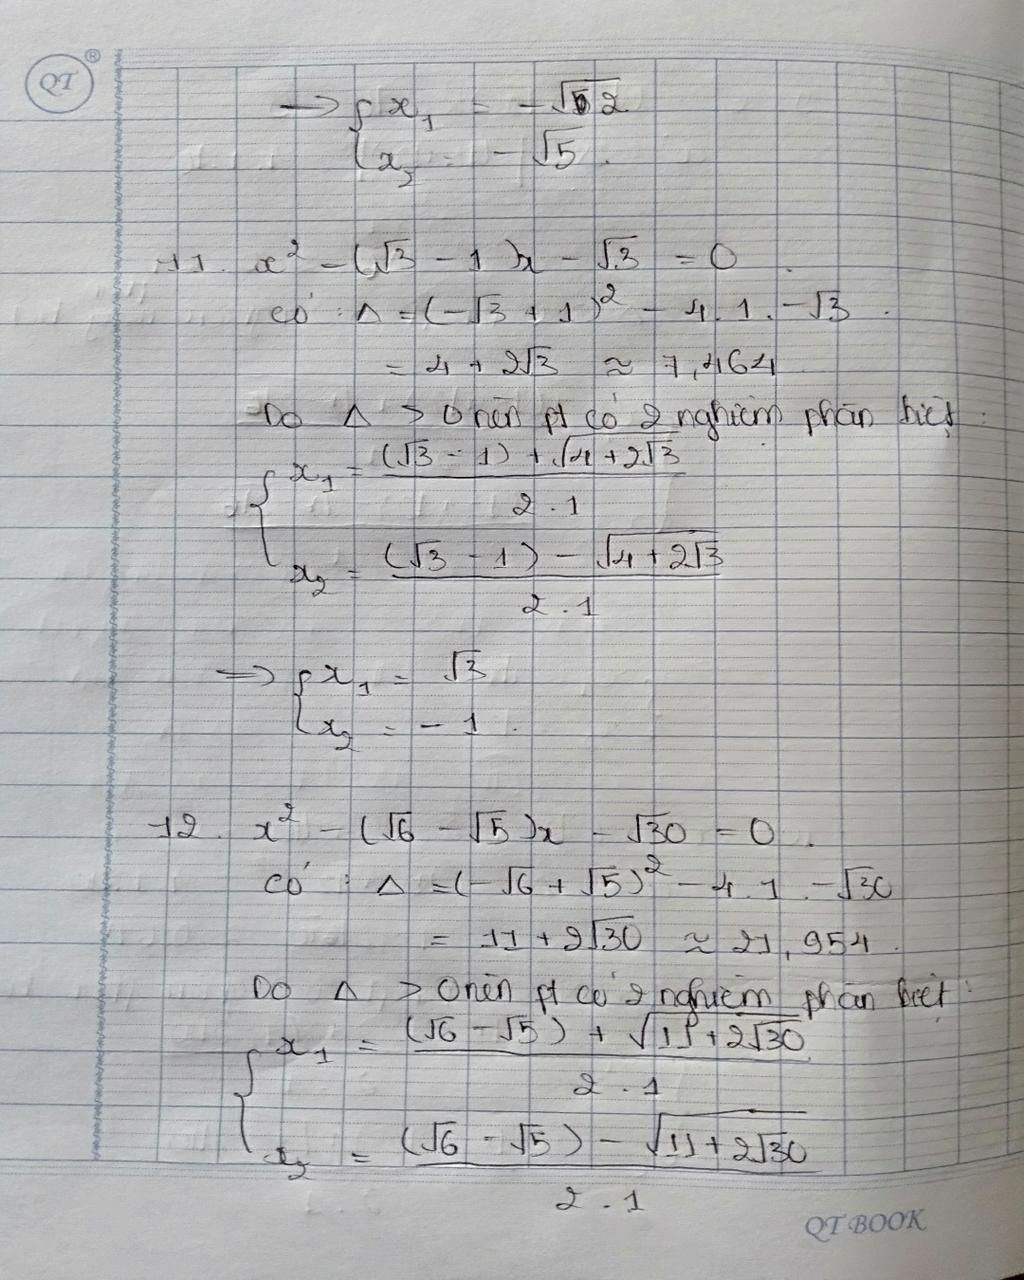 QT ®
→ { x₁ = -√2
x₂ = -√5.
11. x² - (√3 - 1)x - √3 = 0.
Có: Δ = (-√3 + 1)² - 4.1.-√3.
= 4 + 2√3 ≈ 7,464
Do Δ > 0 nên pt có 2 nghiệm phân biệt:
{ x₁ = ((√3 - 1) + √(4 + 2√3)) / (2.1)
x₂ = ((√3 - 1) - √(4 + 2√3)) / (2.1)
=> { x₁ = √3
x₂ = -1.
12. x² - (√6 - √5)x - √30 = 0.
Có: Δ = (-√6 + √5)² - 4.1.-√30
= 11 + 2√30 ≈ 21,954.
Do Δ > 0 nên pt có 2 nghiệm phân biệt:
{ x₁ = ((√6 - √5) + √(11 + 2√30)) / (2.1)
x₂ = ((√6 - √5) - √(11 + 2√30)) / (2.1)
QT BOOK